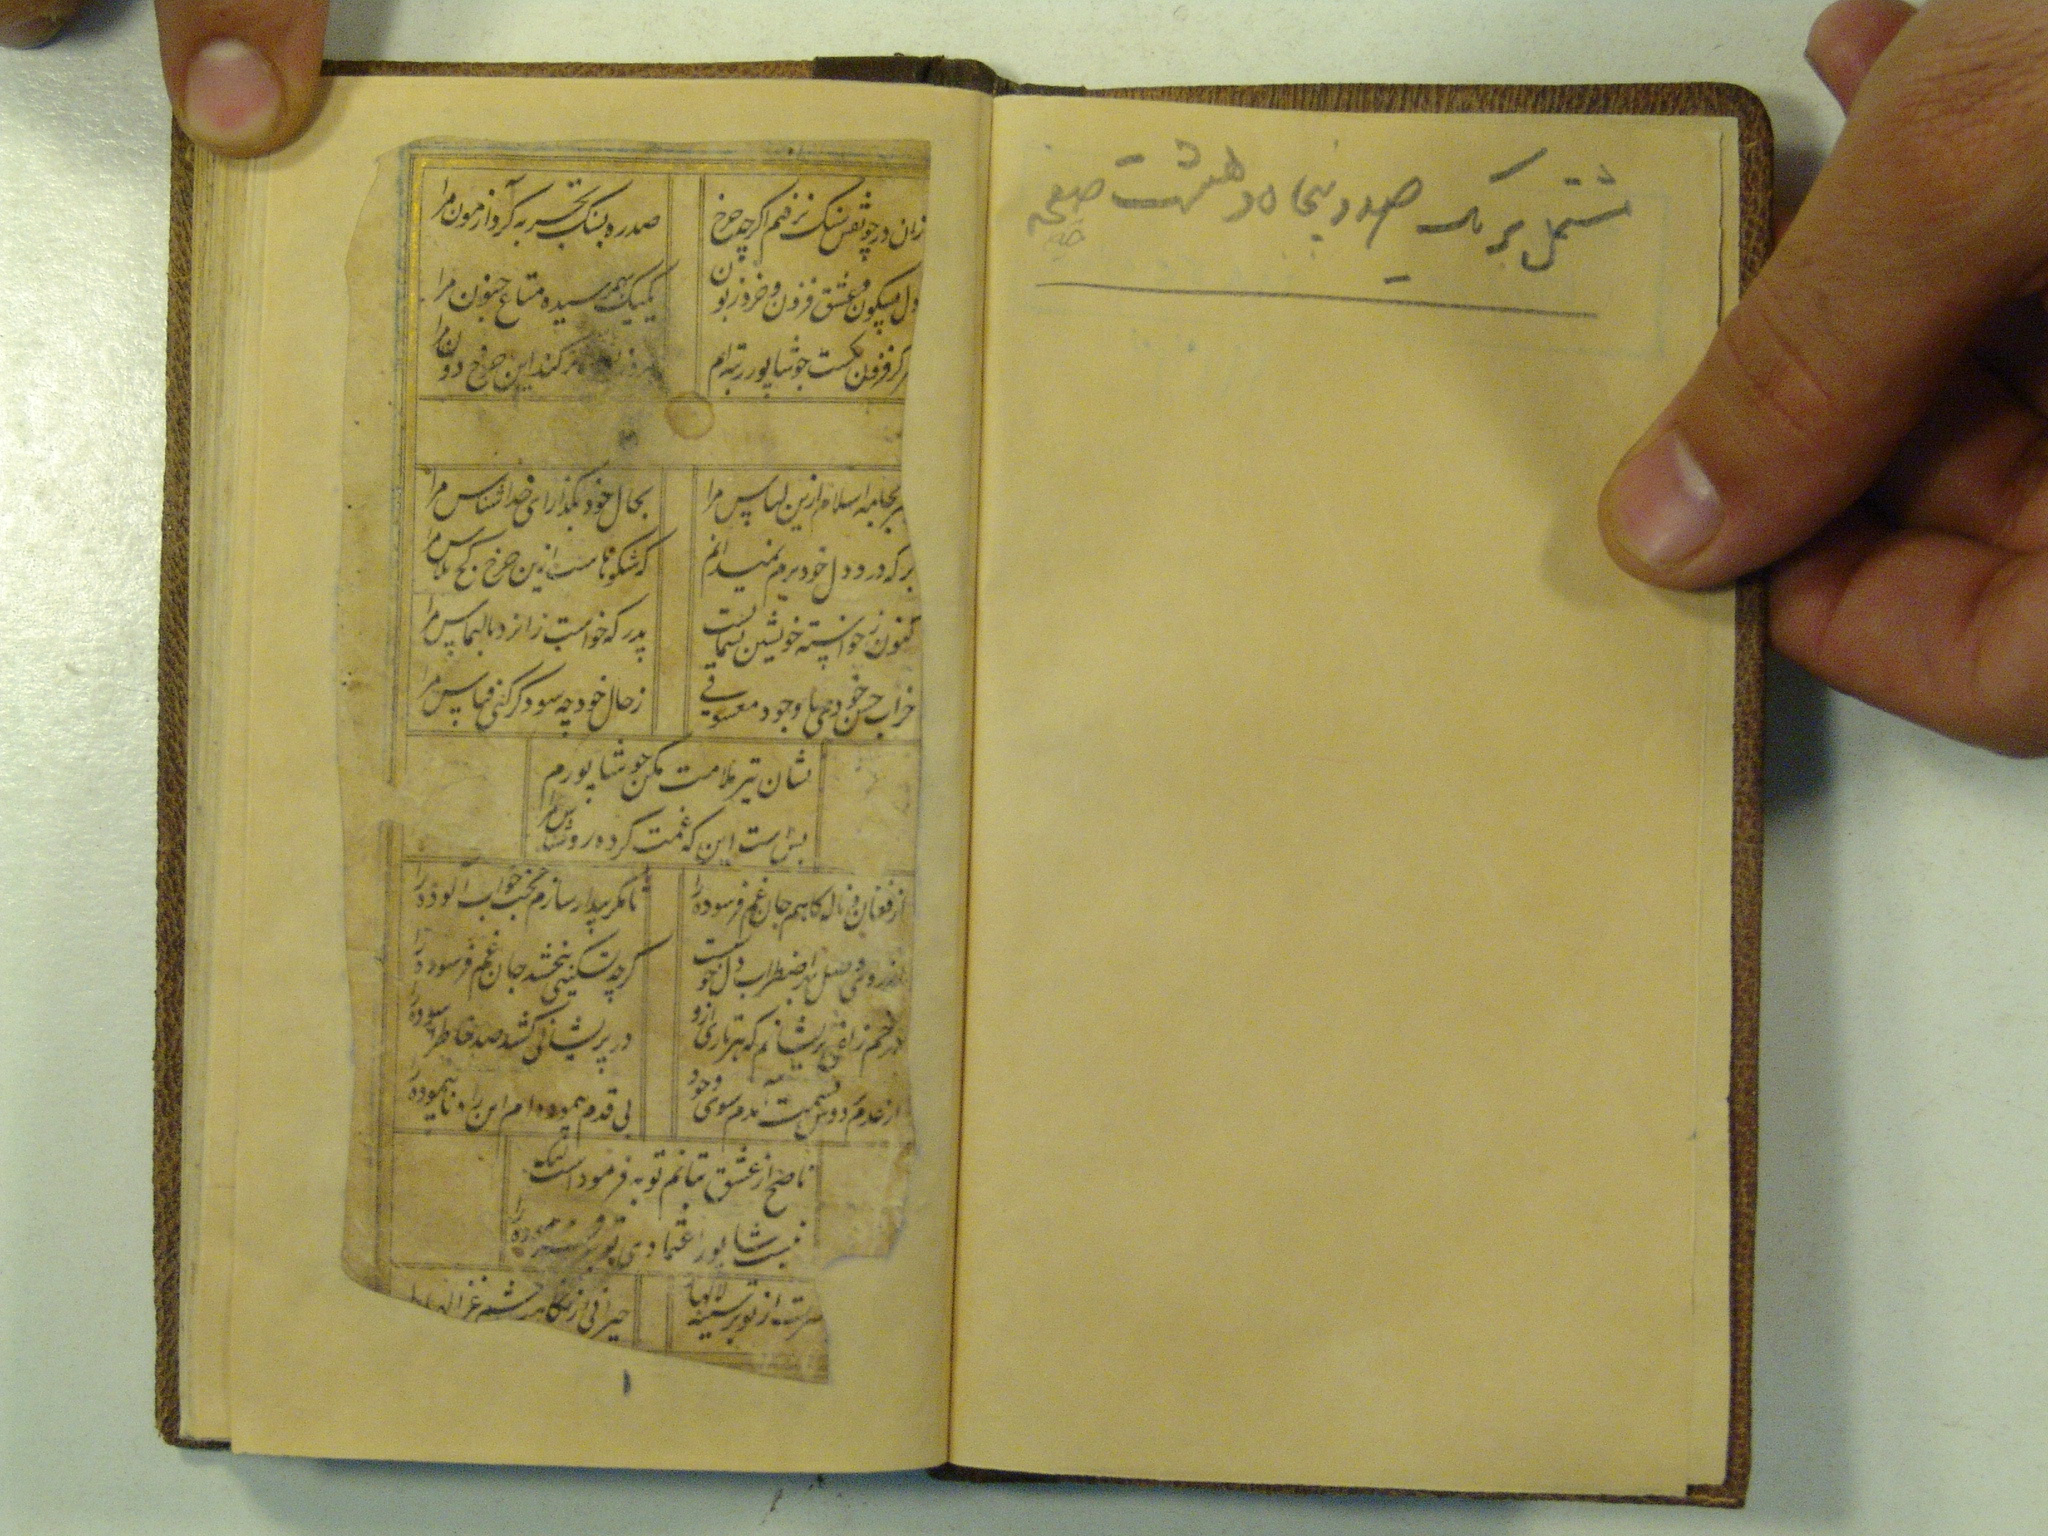 مشتمل بر یک صد و پنجاه و هشت صفحه
زان در چو نقش سنگ نرفتم اگر چه چرخ
صدره بسنگ تجربه کرد آزمون مرا
دل میکون و عشق فزون و خرد زبون
یکیک بهم رسیده متاع جنون مرا
فزون یکست چو شاپور رتبه‌ام
کند این چرخ دون مرا
بجامه اسلام ازین لباس مرا
بحال خود بگذار ای خدا شناس مرا
که درد دل خود برم نمیدانم
که شکوهاست ازین چرخ کج پلاس مرا
کنون ز خواسته خویشتن پشیمانست
پدر که خواست ز ایزد بالتماس مرا
خراب حسن خودی با وجود معشوقی
ز حال خود چه سود گر کنی قیاس مرا
نشان تیر ملامت مکن چو شاپورم
بس است این که غمت کرده روشناس مرا
از فغان و ناله کاهم جان غم فرسوده را
تا مگر بیدار سازم بخت خواب آلوده را
وصل اضطراب دل خوست
گرچه تسکینی نبخشد جان غم فرسوده را
خم زلفی پریشانم که هر تاری ازو
در پریشانی کشد صد خاطر آسوده را
از عدم دوش آمدم سوی وجود
بی قدم پیموده‌ام این راه ناپیموده را
ناصح از عشق بتانم توبه فرمود است لیک
نیست شاپور اعتمادی توبه فرموده را
از تو بر سینه لالها
حیرانی از نگاه چشم غزالها
۱